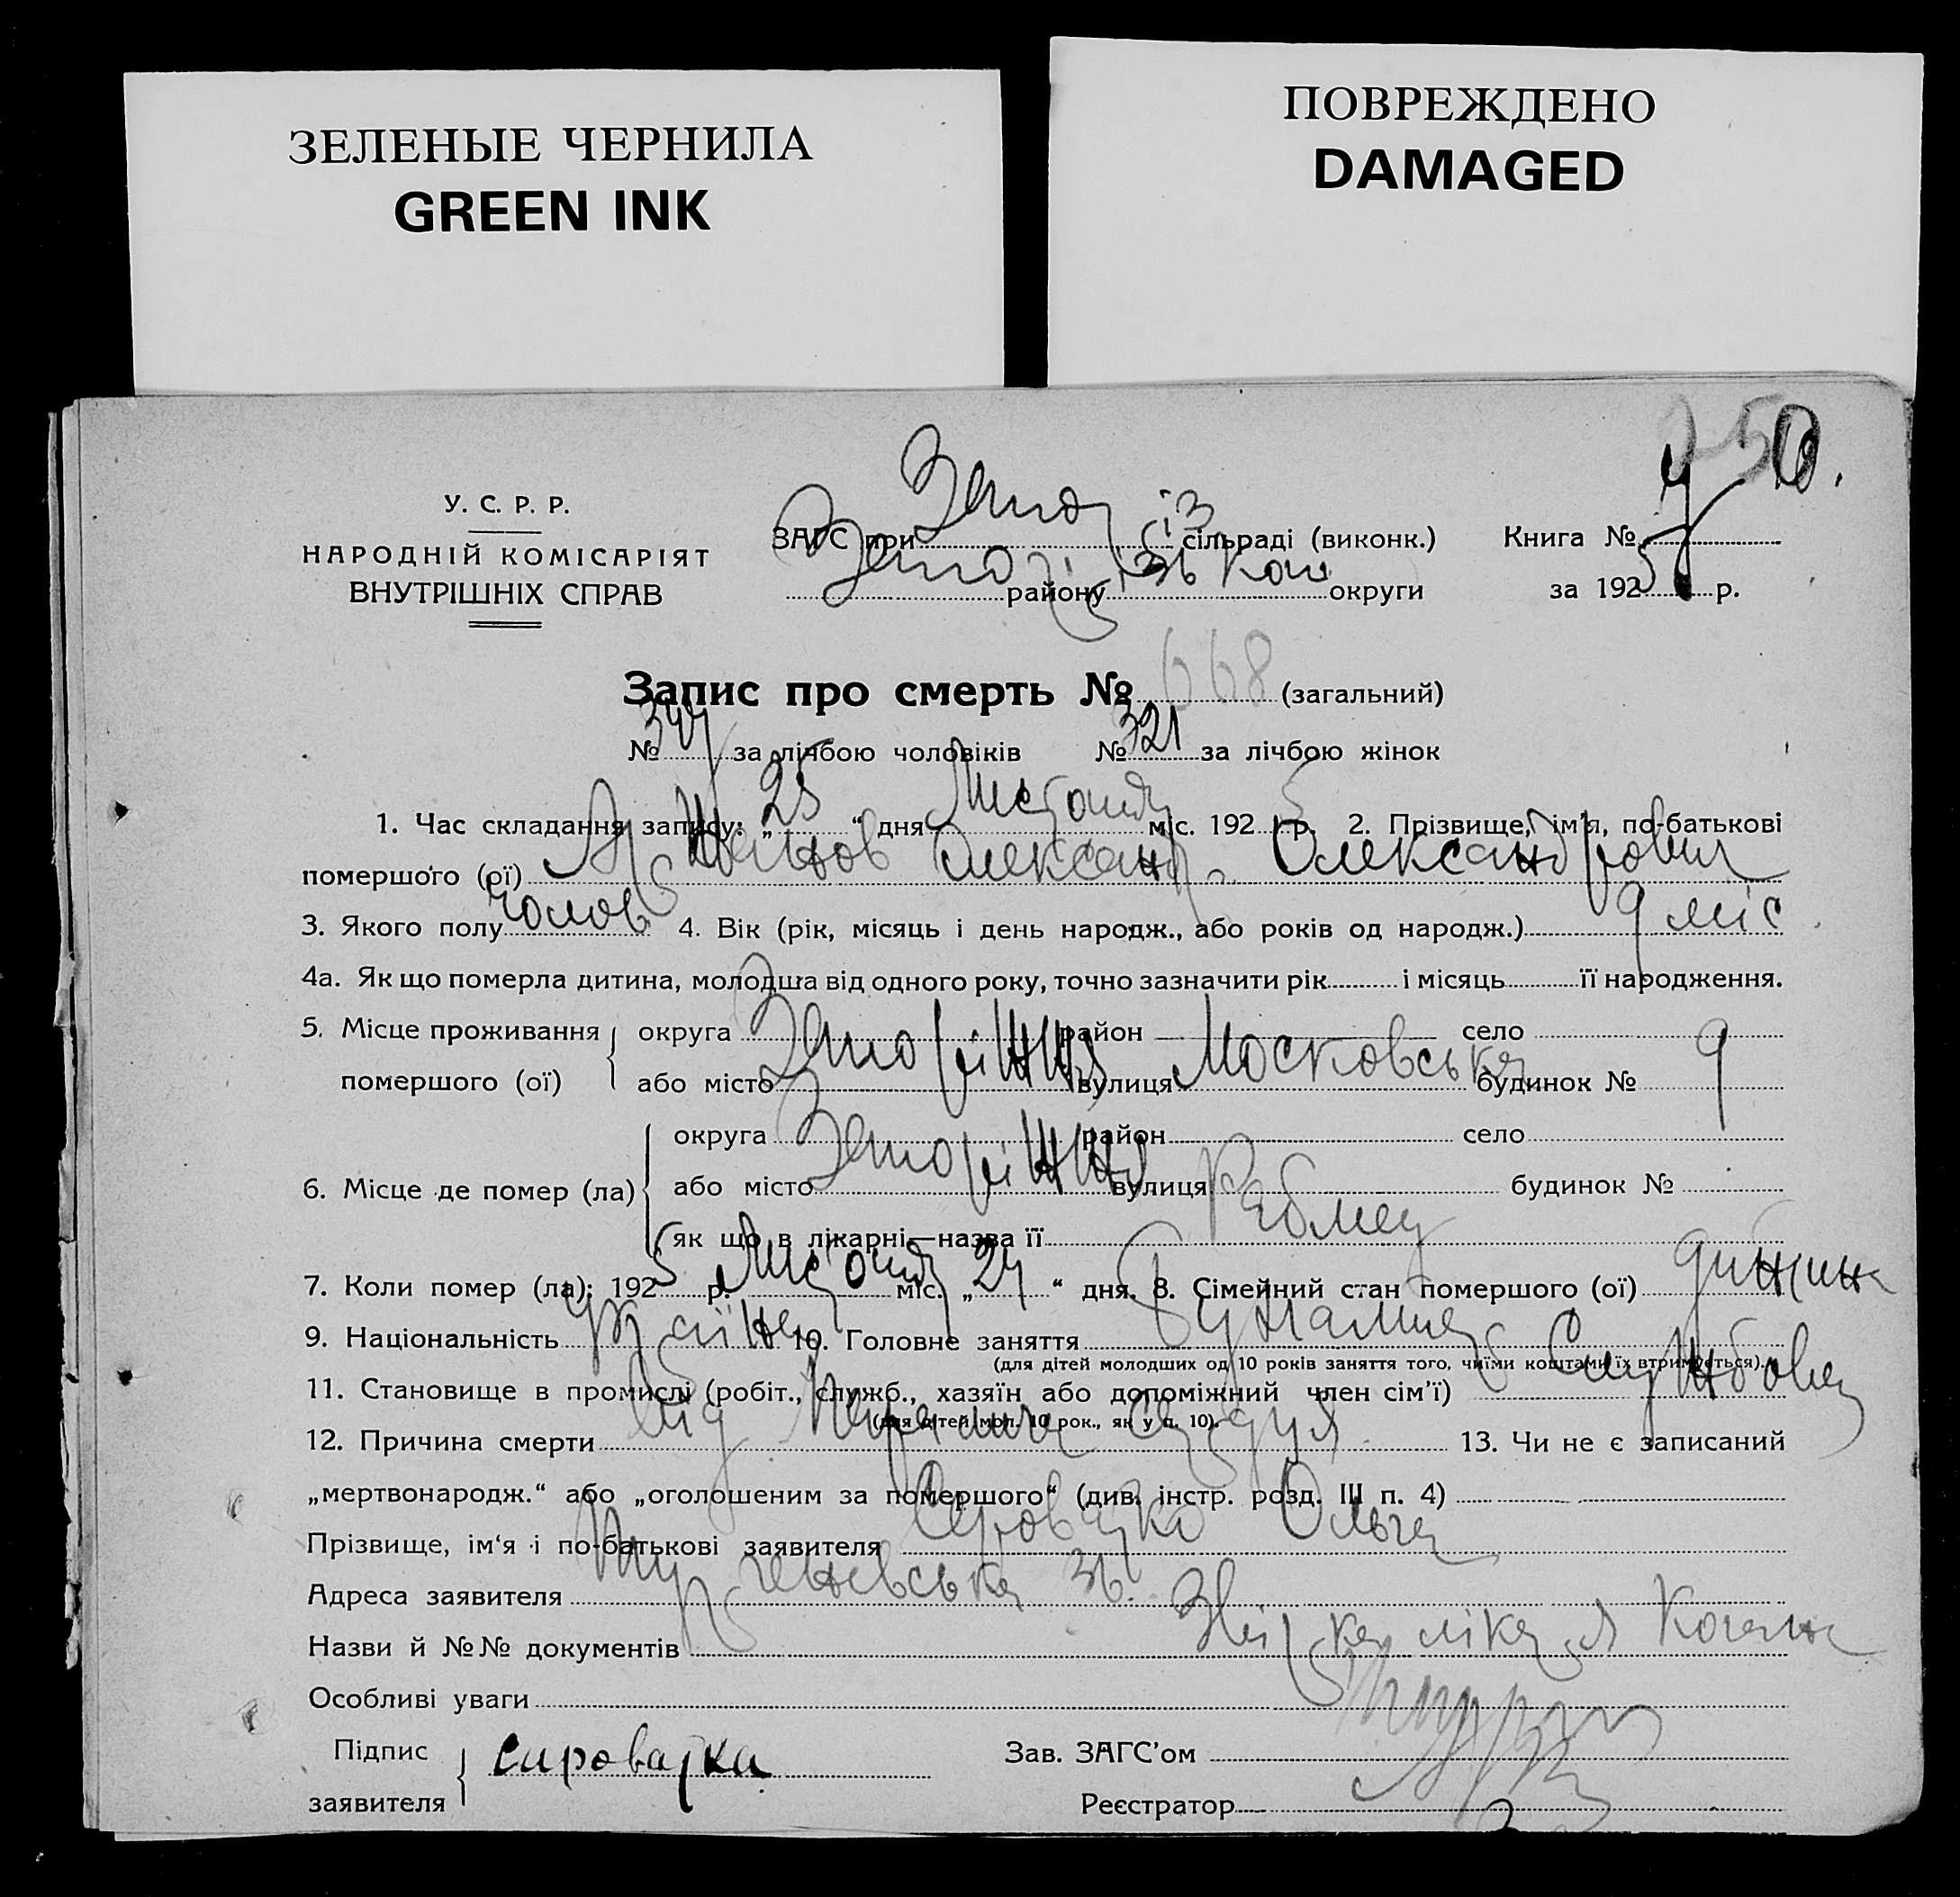 ЗЕЛЕНЫЕ ЧЕРНИЛА
GREEN INK
ПОВРЕЖДЕНО
DAMAGED
У. С. Р. Р.
НАРОДНІЙ КОМІСАРІЯТ
ВНУТРІШНІХ СПРАВ
ЗАГС при сільраді (виконк.)
району округи
Книга №
за 1925 р.
Запис про смерть № 668 (загальний)
№ 347 за лічбою чоловіків № 321 за лічбою жінок
1. Час складання запису: „25“ дня Листопада міс. 1925 р. 2. Прізвище, ім'я, по-батькові
помершого (ої) Олександр Олександрович
3. Якого полу чолов 4. Вік (рік, місяць і день народж., або років од народж.) 9 міс
4а. Як що померла дитина, молодша від одного року, точно зазначити рік і місяць її народження.
5. Місце проживання помершого (ої) округа район село
або місто Запоріжжя вулиця Московська будинок № 9
6. Місце де помер (ла) округа район село
або місто Запоріжжя вулиця будинок №
як що в лікарні—назва її
7. Коли помер (ла): 1925 р. Листопада міс. „24“ дня. 8. Сімейний стан помершого (ої)
9. Національність україн 10. Головне заняття
(для дітей молодших од 10 років заняття того, чиїми коштами їх втримується).
11. Становище в промислі (робіт., служб., хазяїн або допоміжний член сім'ї) Службовец
(для дітей мол. 10 рок., як у п. 10).
12. Причина смерти від 13. Чи не є записаний
„мертвонародж.“ або „оголошеним за помершого“ (див. інстр. розд. III п. 4)
Прізвище, ім'я і по-батькові заявителя Сироватко Ольга
Адреса заявителя Тургеневська 36.
Назви й №№ документів лікаря Коган
Особливі уваги
Підпис заявителя Сироватка
Зав. ЗАГС'ом
Реєстратор